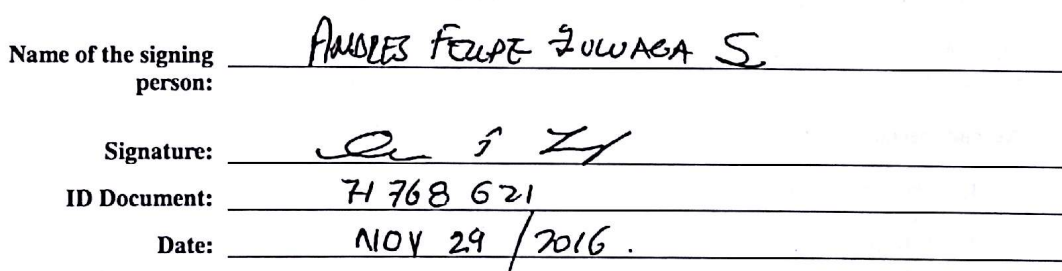 Name of the signing person: ANDRES FELIPE ZULUAGA S
Signature:
ID Document: 71 768 621
Date: NOV 29 / 2016.